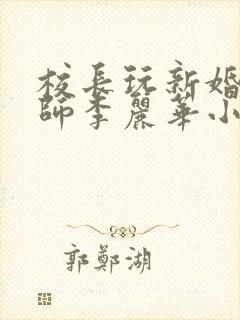 校長玩新婚
師李麗華小
郭鄭湖